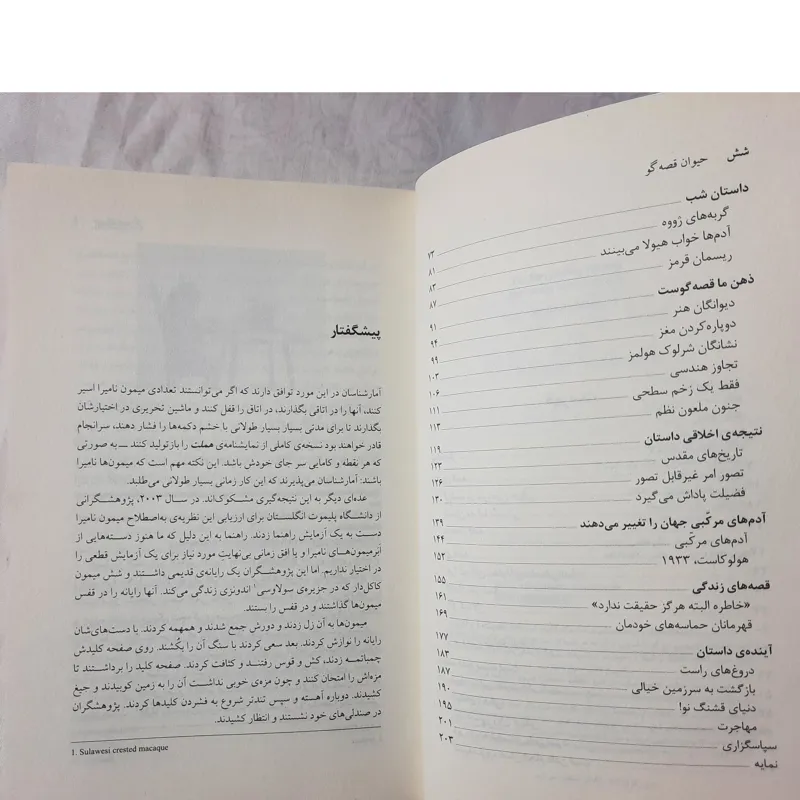 شش حیوان قصه‌گو
داستان شب ۷۳
گربه‌های ژووه ۸۱
آدم‌ها خواب هیولا می‌بینند ۸۳
ریسمان قرمز ۸۷
ذهن ما قصه‌گوست ۹۱
دیوانگان هنر ۹۴
دوپاره‌کردن مغز ۹۹
نشانگان شرلوک هولمز ۱۰۳
تجاوز هندسی ۱۰۶
فقط یک زخم سطحی ۱۱۱
جنون ملعون نظم ۱۱۳
نتیجه‌ی اخلاقی داستان ۱۱۹
تاریخ‌های مقدس ۱۲۳
تصور امر غیرقابل تصور ۱۲۶
فضیلت پاداش می‌گیرد ۱۳۰
آدم‌های مرکّبی جهان را تغییر می‌دهند ۱۳۹
آدم‌های مرکّبی ۱۴۴
هولوکاست، ۱۹۳۳ ۱۵۲
قصه‌های زندگی ۱۵۵
«خاطره البته هرگز حقیقت ندارد» ۱۶۱
قهرمانان حماسه‌های خودمان ۱۶۹
آینده‌ی داستان ۱۷۷
دروغ‌های راست ۱۸۳
بازگشت به سرزمین خیالی ۱۸۷
دنیای قشنگ نو! ۱۹۰
مهاجرت ۱۹۵
سپاسگزاری ۲۰۱
نمایه ۲۰۳
پیشگفتار
آمارشناسان در این مورد توافق دارند که اگر می‌توانستند تعدادی میمون نامیرا اسیر
کنند، آنها را در اتاقی بگذارند، در اتاق را قفل کنند و ماشین تحریری در اختیارشان
بگذارند تا برای مدتی بسیار بسیار طولانی با خشم دکمه‌ها را فشار دهند، سرانجام
قادر خواهند بود نسخه‌ی کاملی از نمایشنامه‌ی هملت را بازتولید کنند ــ به صورتی
که هر نقطه و کامایی سر جای خودش باشد. این نکته مهم است که میمون‌ها نامیرا
باشند: آمارشناسان می‌پذیرند که این کار زمانی بسیار طولانی می‌طلبد.
عده‌ای دیگر به این نتیجه‌گیری مشکوک‌اند. در سال ۲۰۰۳، پژوهشگرانی
از دانشگاه پلیموت انگلستان برای ارزیابی این نظریه‌ی به‌اصطلاح میمون نامیرا
دست به یک آزمایش راهنما زدند. راهنما به این دلیل که ما هنوز دسته‌هایی از
اَبَرمیمون‌های نامیرا و یا افق زمانی بی‌نهایتِ مورد نیاز برای یک آزمایش قطعی را
در اختیار نداریم. اما این پژوهشگران یک رایانه‌ی قدیمی داشتند و شش میمون
کاکل‌دار که در جزیره‌ی سولاوسی¹ اندونزی زندگی می‌کند. آنها رایانه را در قفس
میمون‌ها گذاشتند و در قفس را بستند.
میمون‌ها به آن زل زدند و دورش جمع شدند و همهمه کردند. با دست‌های‌شان
رایانه را نوازش کردند. بعد سعی کردند با سنگ آن را بکُشند. روی صفحه کلیدش
چمباتمه زدند، کش و قوس رفتند و کثافت کردند. صفحه کلید را برداشتند تا
مزه‌اش را امتحان کنند و چون مزه‌ی خوبی نداشت آن را به زمین کوبیدند و جیغ
کشیدند. دوباره آهسته و سپس تندتر شروع به فشردن کلیدها کردند. پژوهشگران
در صندلی‌های خود نشستند و انتظار کشیدند.
1. Sulawesi crested macaque